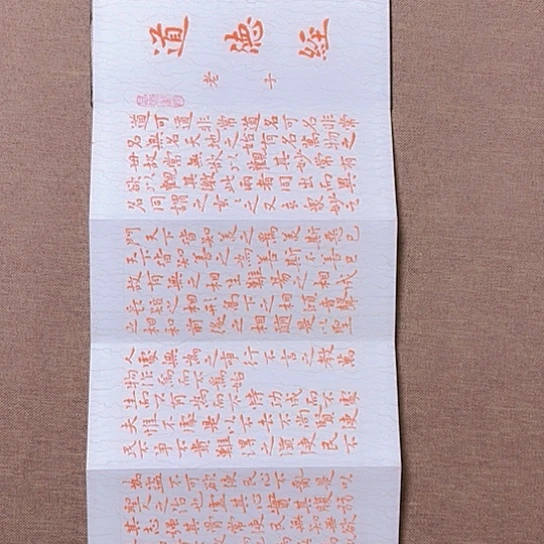 道德經
老子
道可道非常道名可名非常
名無名天地之始有名萬物之
母故常無欲以觀其妙常有
欲以觀其徼此兩者同出而異
名同謂之玄〻之又玄衆妙之
門天下皆知美之為美斯惡已
天下皆知善之為善斯不善已
故有無之相生難易之相成
長短之相形高下之相傾音聲
之相和前後之相隨是以聖
人處無為之事行不言之教萬
物作焉而不為始
生而不有為而不恃功成而不處
夫惟不處是以不去不尚賢使
民不爭不貴難得之貨使民不
為盜不可欲使民心不亂是以
聖人之治也虛其心實其腹弱
其志強其骨常使民無知無欲